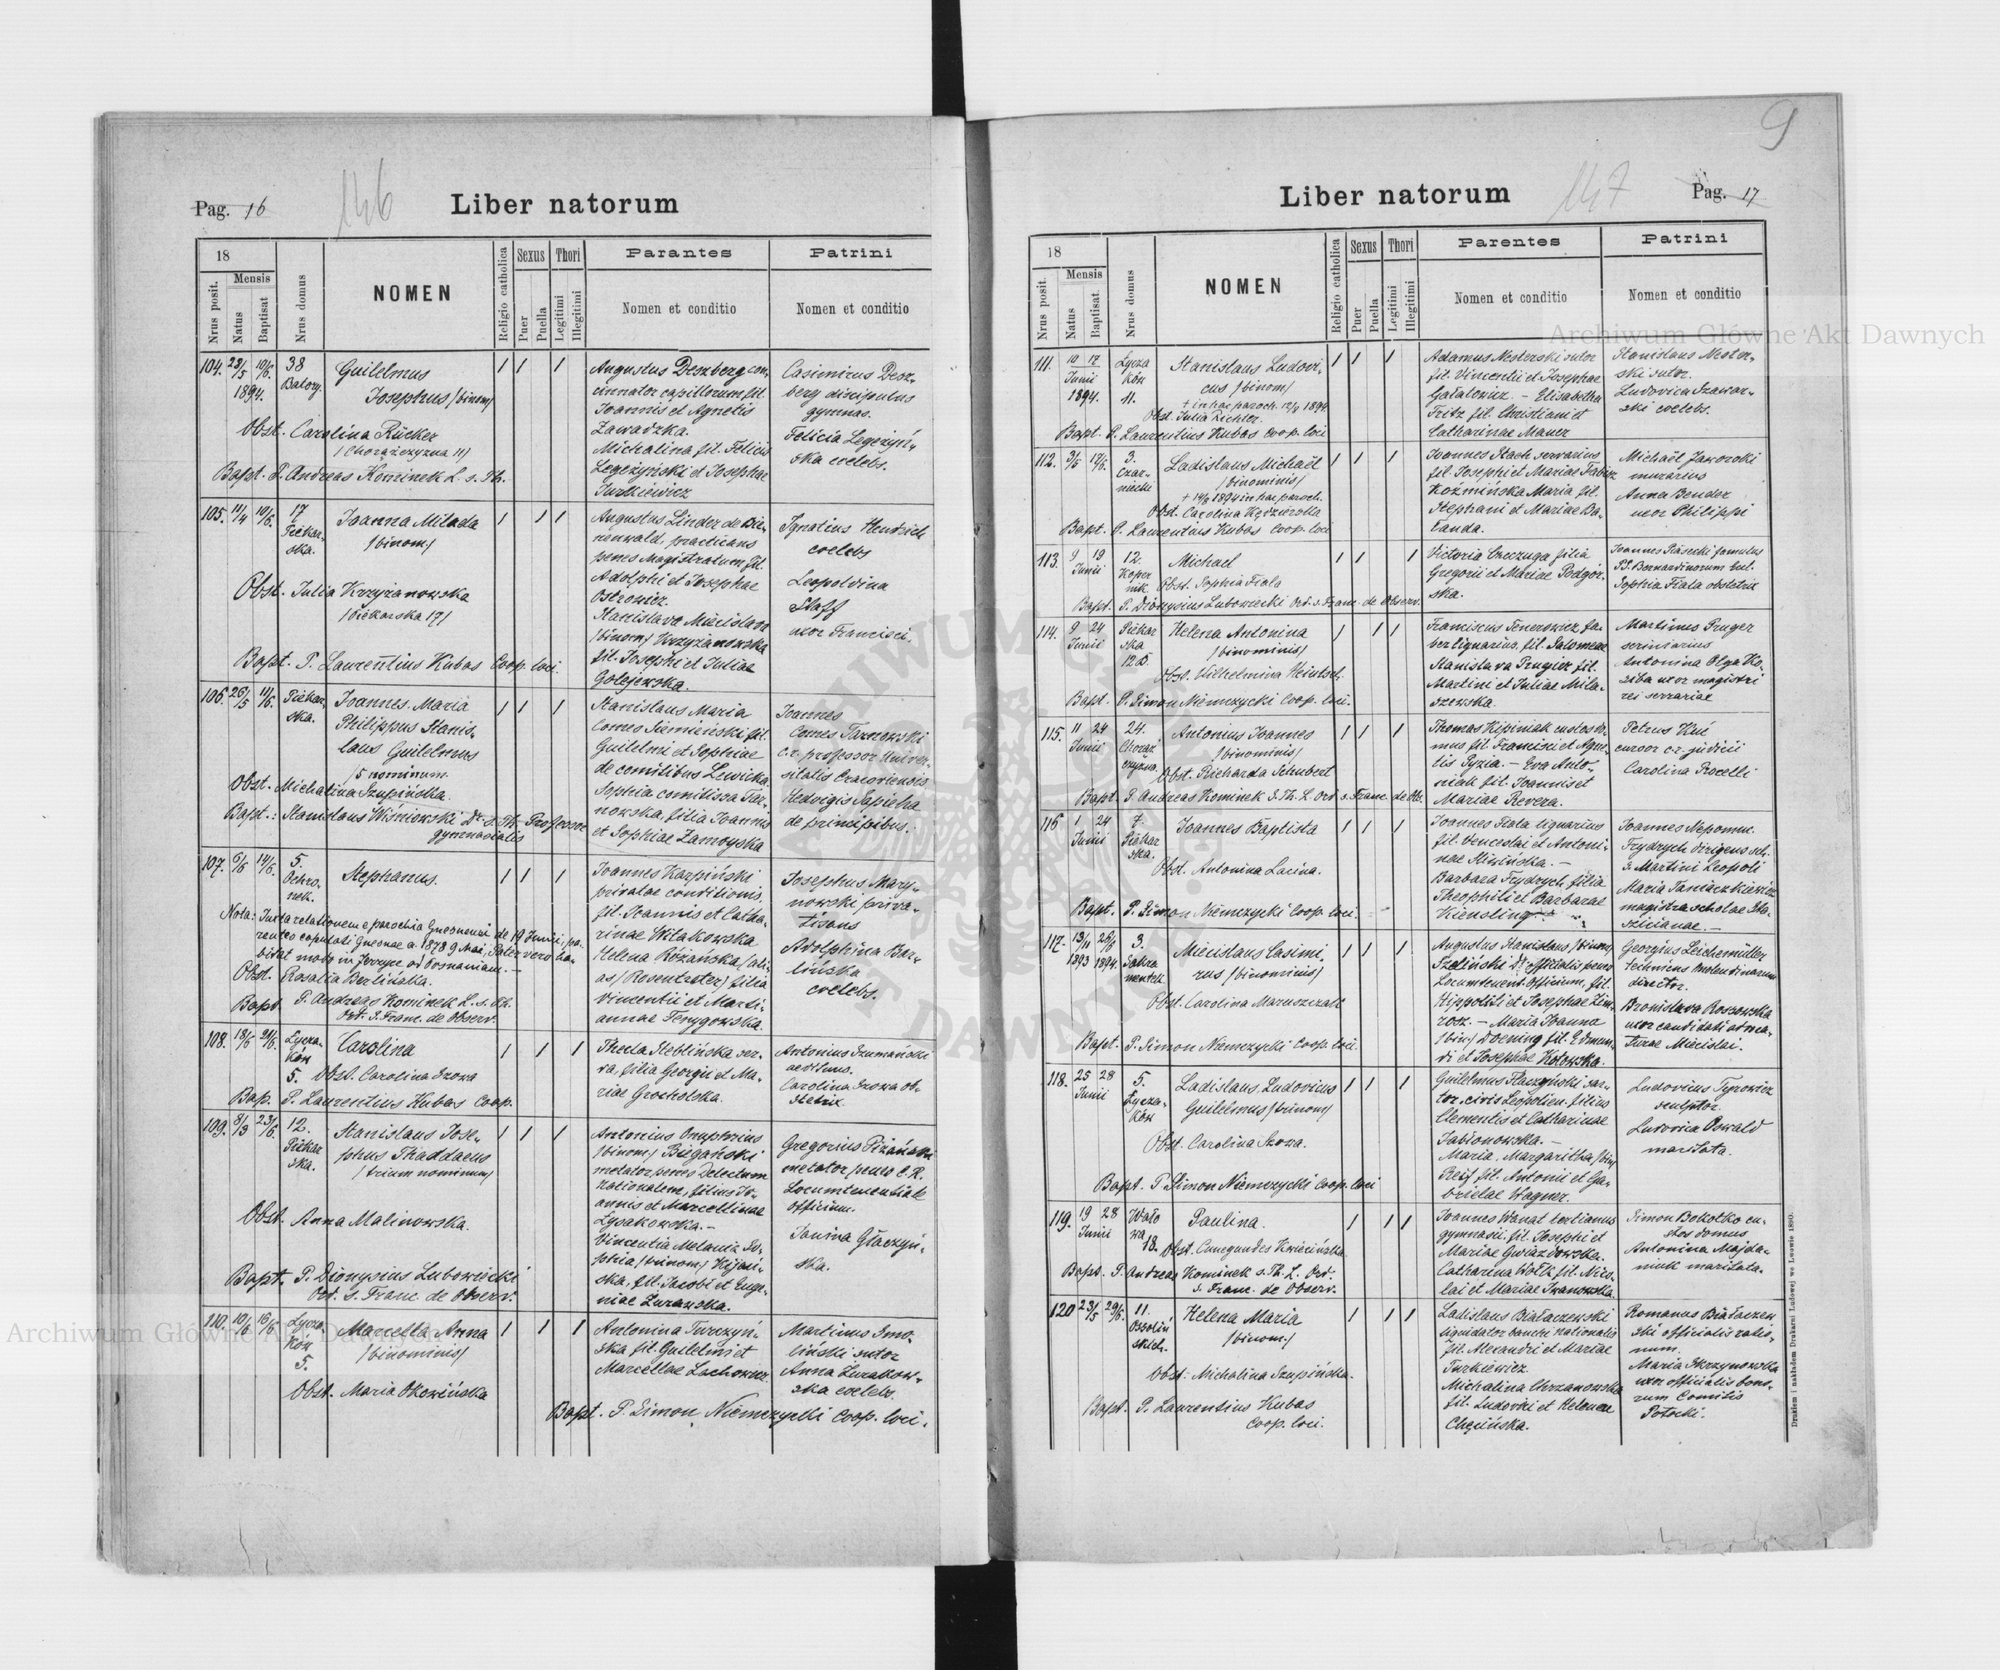 Pag. 16
146
Liber natorum
18
Mensis
Nrus posit.
Natus
Baptisat
Nrus domus
NOMEN
Religio catholica
Sexus
Puer
Puella
Thori
Legitimi
Illegitimi
Parantes
Nomen et conditio
Patrini
Nomen et conditio
104. 23/5 10/6. 1894.
38 Batory.
Guilelmus
Josephus /binom/
Obst. Carolina Rücker
/Chorążczyzna 11/
Bapt. P. Andreas Kominek L. s. Th.
Augustus Deszberg con-
cinnator capillorum fil.
Joannis et Agnetis
Zawadzka.
Michalina fil. Felicis
Legeżyński et Josephae
Jurkiewicz
Casimirus Desz-
berg discipulus
gymnas.
Felicia Legeżyń-
ska coelebs.
105. 11/4 10/6.
17 Piekar-
ska.
Joanna Milada
/binom./
Obst. Julia Krzyżanowska
/Piekarska 17/
Bapt. P. Laurentius Kubas Coop. loci.
Augustus Linder de Bie-
nenwald, practicans
penes Magistratum fil.
Adolphi et Josephae
Ostrowicz.
Stanislava Miecislava
/binom/ Krzyżanowska
fil. Josephi et Juliae
Golejewska.
Ignatius Hendrich
coelebs
Leopoldina
Staff
uxor Francisci.
106. 26/5 11/6.
Piekar-
ska.
Joannes Maria
Philippus Stanis-
laus Guilelmus
/5 nominum.
Obst. Michalina Szupińska.
Bapt.: Stanislaus Wiśniowski Dr. s. Th. Professor
gymnasialis
Stanislaus Maria
Comes Siemieński fil.
Guilelmi et Sophiae
de comitibus Lewicka
Sophia comitissa Tar-
nowska, filia Joannis
et Sophiae Zamoyska
Joannes
Comes Tarnowski
c.r. professor Univer-
sitatis Cracoviensis
Hedvigis Sapieha
de principibus.
107. 6/6 14/6.
5. Ochro-
nek.
Stephanus.
Nota: Juxta relationem e parochia Gnesnensi de 19 Junii, pa-
rentes copulati Gnesnae a. 1878 9 Mai, Pater vero ha-
bitat modo in Jerzyce ad Posnaniam.
Obst. Rosalia Berlińska.
Bapt P. Andreas Kominek L. s. Th.
Ord. S. Franc. de Observ.
Joannes Karpiński
privatae conditionis.
fil. Joannis et Catha-
rinae Witakowska
Helena Różańska /ali-
as/ Rosentreter/ filia
Vincentii et Marti-
annae Terygowska.
Josephus Mary-
nowski priva-
tisans
Adolphina Bar-
lińska
coelebs.
108. 18/6 21/6.
Łycza-
ków
5.
Carolina
Obst. Carolina Szowa
Bap. P. Laurentius Kubas Coop.
Thecla Steblińska ser-
va, filia Georgii et Ma-
riae Grocholska.
Antonius Szumański
aedituus.
Carolina Szowa ob-
stetrix.
109. 8/3 23/6.
12.
Piekar
ska.
Stanislaus Jose-
phus Thaddaeus
/trium nominum/
Obst. Anna Malinowska.
Bapt. P. Dionysius Lubowiecki
Ord. s. Franc. de Observ.
Antonius Onuphrius
/binom/ Biegański
metator penes Delectum
nationalem, filius Jo-
annis et Marcellinae
Łysakowska.–
Vincentia Melania So-
phia /binom/ Kijań-
ska, fil. Jacobi et Euge-
niae Żurawska.
Gregorius Piżański
metator penes C.R.
Locumtenentiale
officium.
Janina Głaczyń-
ska.
110. 10/6 16/6
Łycza-
ków
5.
Marcella Anna
/binominis/
Obst. Maria Okowińska
Bapt. P. Simon Niemczycki Coop. loci.
Antonina Turczyń-
ska fil. Guilelmi et
Marcellae Lachowicz
Martinus Smo-
liński sutor
Anna Żurakow-
ska coelebs.
9
147
Liber natorum
Pag. 17
18
Mensis
Nrus posit.
Natus
Baptisat.
Nrus domus
NOMEN
Religio catholica
Sexus
Puer
Puella
Thori
Legitimi
Illegitimi
Parentes
Nomen et conditio
Patrini
Nomen et conditio
111. 10 17 Junii 1894
Łycza
ków
11.
Stanislaus Ludovi-
cus /binom/
+ in hac paroch. 12/9 1894
Obst. Julia Richter.
Bapt. P. Laurentius Kubas Coop. loci
Adamus Nesterski sutor
fil. Vincentii et Josephae
Gałatowicz. – Elisabetha
Fritz fil. Christiani et
Catharinae Mauer
Stanislaus Nester-
ski sutor.
Ludovica Szawar-
ski coelebs.
112. 3/6 17/6.
3.
Czar-
niecki
Ladislaus Michaël
/binominis/
+ 14/8 1894 in hac paroch.
Obst. Carolina Kędzierska
Bapt. P. Laurentius Kubas Coop. loci
Joannes Stach servarius
fil. Josephi et Mariae Trabisz
Koźmińska Maria fil.
Stephani et Mariae Ba-
łanda.
Michaël Jaworski
murarius
Anna Bender
uxor Philippi
113. 9 19 Junii
12.
Koper
nik.
Michael
Obst. Sophia Fiala
Bapt. P. Dionysius Lubowiecki Ord. s. Franc. de Observ.
Victoria Checzuga filia
Gregorii et Mariae Podgór-
ska.
Joannes Piasecki famulus
PP. Bernardinorum
Sophia Fiala obstetrix
114. 9 24 Junii
Piekar
ska
12 B.
Helena Antonina
/binominis/
Obst. Wilhelmina Heintsch.
Bapt. P. Simon Niemczycki Coop. loci.
Franciscus Tenerowicz fa-
ber lignarius. fil. Salomeae
Stanislava Prugier fil.
Martini et Juliae Mila-
szewska.
Martinus Pruger
scriniarius
Antonina Olga Ko-
ziba uxor magistri
rei serrariae
115. 11 24 Junii
24.
Chorąż
czyzna.
Antonius Joannes
/binominis/
Obst. Richarda Schubert
Bapt. P. Andreas Kominek S. Th. L. Ord. s. Franc. de Obs.
Thomas Kipiniak custos do-
mus fil. Francisci et Agne-
tis Pyzia. – Eva Anto-
niak fil. Joannis et
Mariae Revera.
Petrus Kuć
cursor c.r. judicii
Carolina Rocelli
116 1 24 Junii
7.
Piekar
ska.
Joannes Baptista
Obst. Antonina Lacina.
Bapt. P. Simon Niemczycki Coop. loci.
Joannes Fiala lignarius
fil. Venceslai et Antoni-
nae Sliwińska. –
Barbara Frydrych filia
Theophili et Barbarae
Kiensling.
Joannes Nepomuc.
Frydrych dirigens sch.
s. Martini Leopoli
Maria Janiaczkiewicz
magistra scholae Sta-
szicianae. –
117. 13/11 1893 26/6 1894.
3.
Sakra
mentek.
Miecislaus Casimi-
rus /binominis/
Obst. Carolina Maruszczak
Bapt. P. Simon Niemczycki Coop. loci.
Augustus Stanislaus /binom/
Szeliński Dr. officialis penes
Locumtenent. Officium, fil.
Hippoliti et Josephae Zim-
rosz. – Maria Joanna
/bin/ Doening fil. Edmun-
di et Josephae Kotowska.
Georgius Leichemüller
technicus molendinarum
director.
Bronislava Rossowska
uxor candidati advoca-
turae Miecislai.
118. 25 28 Junii
5.
Łycza-
ków
Ladislaus Ludovicus
Guilelmus /trinom/
Obst. Carolina Szowa.
Bapt. P. Simon Niemczycki Coop. loci
Guilelmus Tłaczyński sar-
tor civis Leopolien. filius
Clementis et Catharinae
Jabłonowska. –
Maria Margaritha /bin/
Reif fil. Antonii et Ga-
brielae Wagner.
Ludovicus Tyrowicz
sculptor.
Ludovica Oswald
maritata.
119. 19 28 Junii
Wało
wa
18.
Paulina.
Obst. Cunegundes Kwiecińska
Bapt. P. Andreas Kominek s. Th. L. Ord.
s. Franc. de Observ.
Joannes Wanat tertianus
gymnasii. fil. Josephi et
Mariae Gwiazdowska.
Catharina Wołk fil. Nico-
lai et Mariae Iwanowska
Simon Bokołko cu-
stos domus
Antonina Majda-
niuk maritata.
120 23/5 29/6.
11.
Ossoliń
skich.
Helena Maria
/binom./
Obst: Michalina Szupińska.
Bapt. P. Laurentius Kubas
Coop. loci.
Ladislaus Białaczewski
liquidator banche nationalis
fil. Alexandri et Mariae
Turkiewicz.
Michalina Chrzanowska
fil. Ludovici et Helenae
Chęcińska.
Romanus Białaczew
ski officialis ratio-
num.
Maria Skrzynowska
uxor officialis bono-
rum Comitis
Potocki.
Drukiem i nakładem Drukarni Ludowej we Lwowie 1890.
Archiwum Główne Akt Dawnych
Archiwum Główne Akt Dawnych
ARCHIWUM GŁÓWNE AKT DAWNYCH